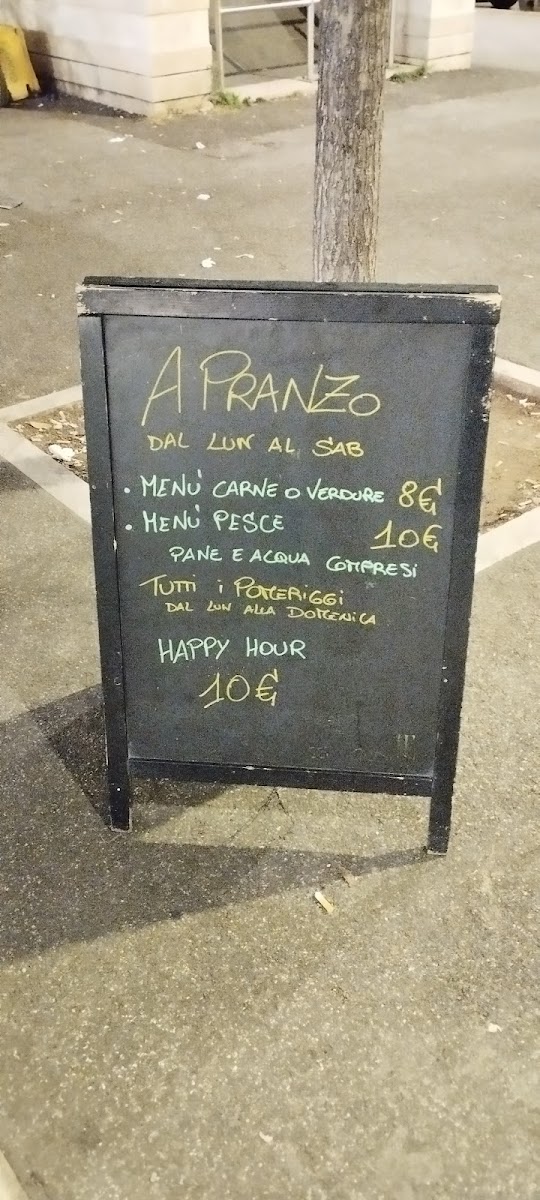 A PRANZO
DAL LUN AL SAB
• MENÙ CARNE O VERDURE 8€
• MENÙ PESCE 10€
PANE E ACQUA COMPRESI
TUTTI i POMERiGGi
DAL LUN ALLA DOMENICA
HAPPY HOUR
10€